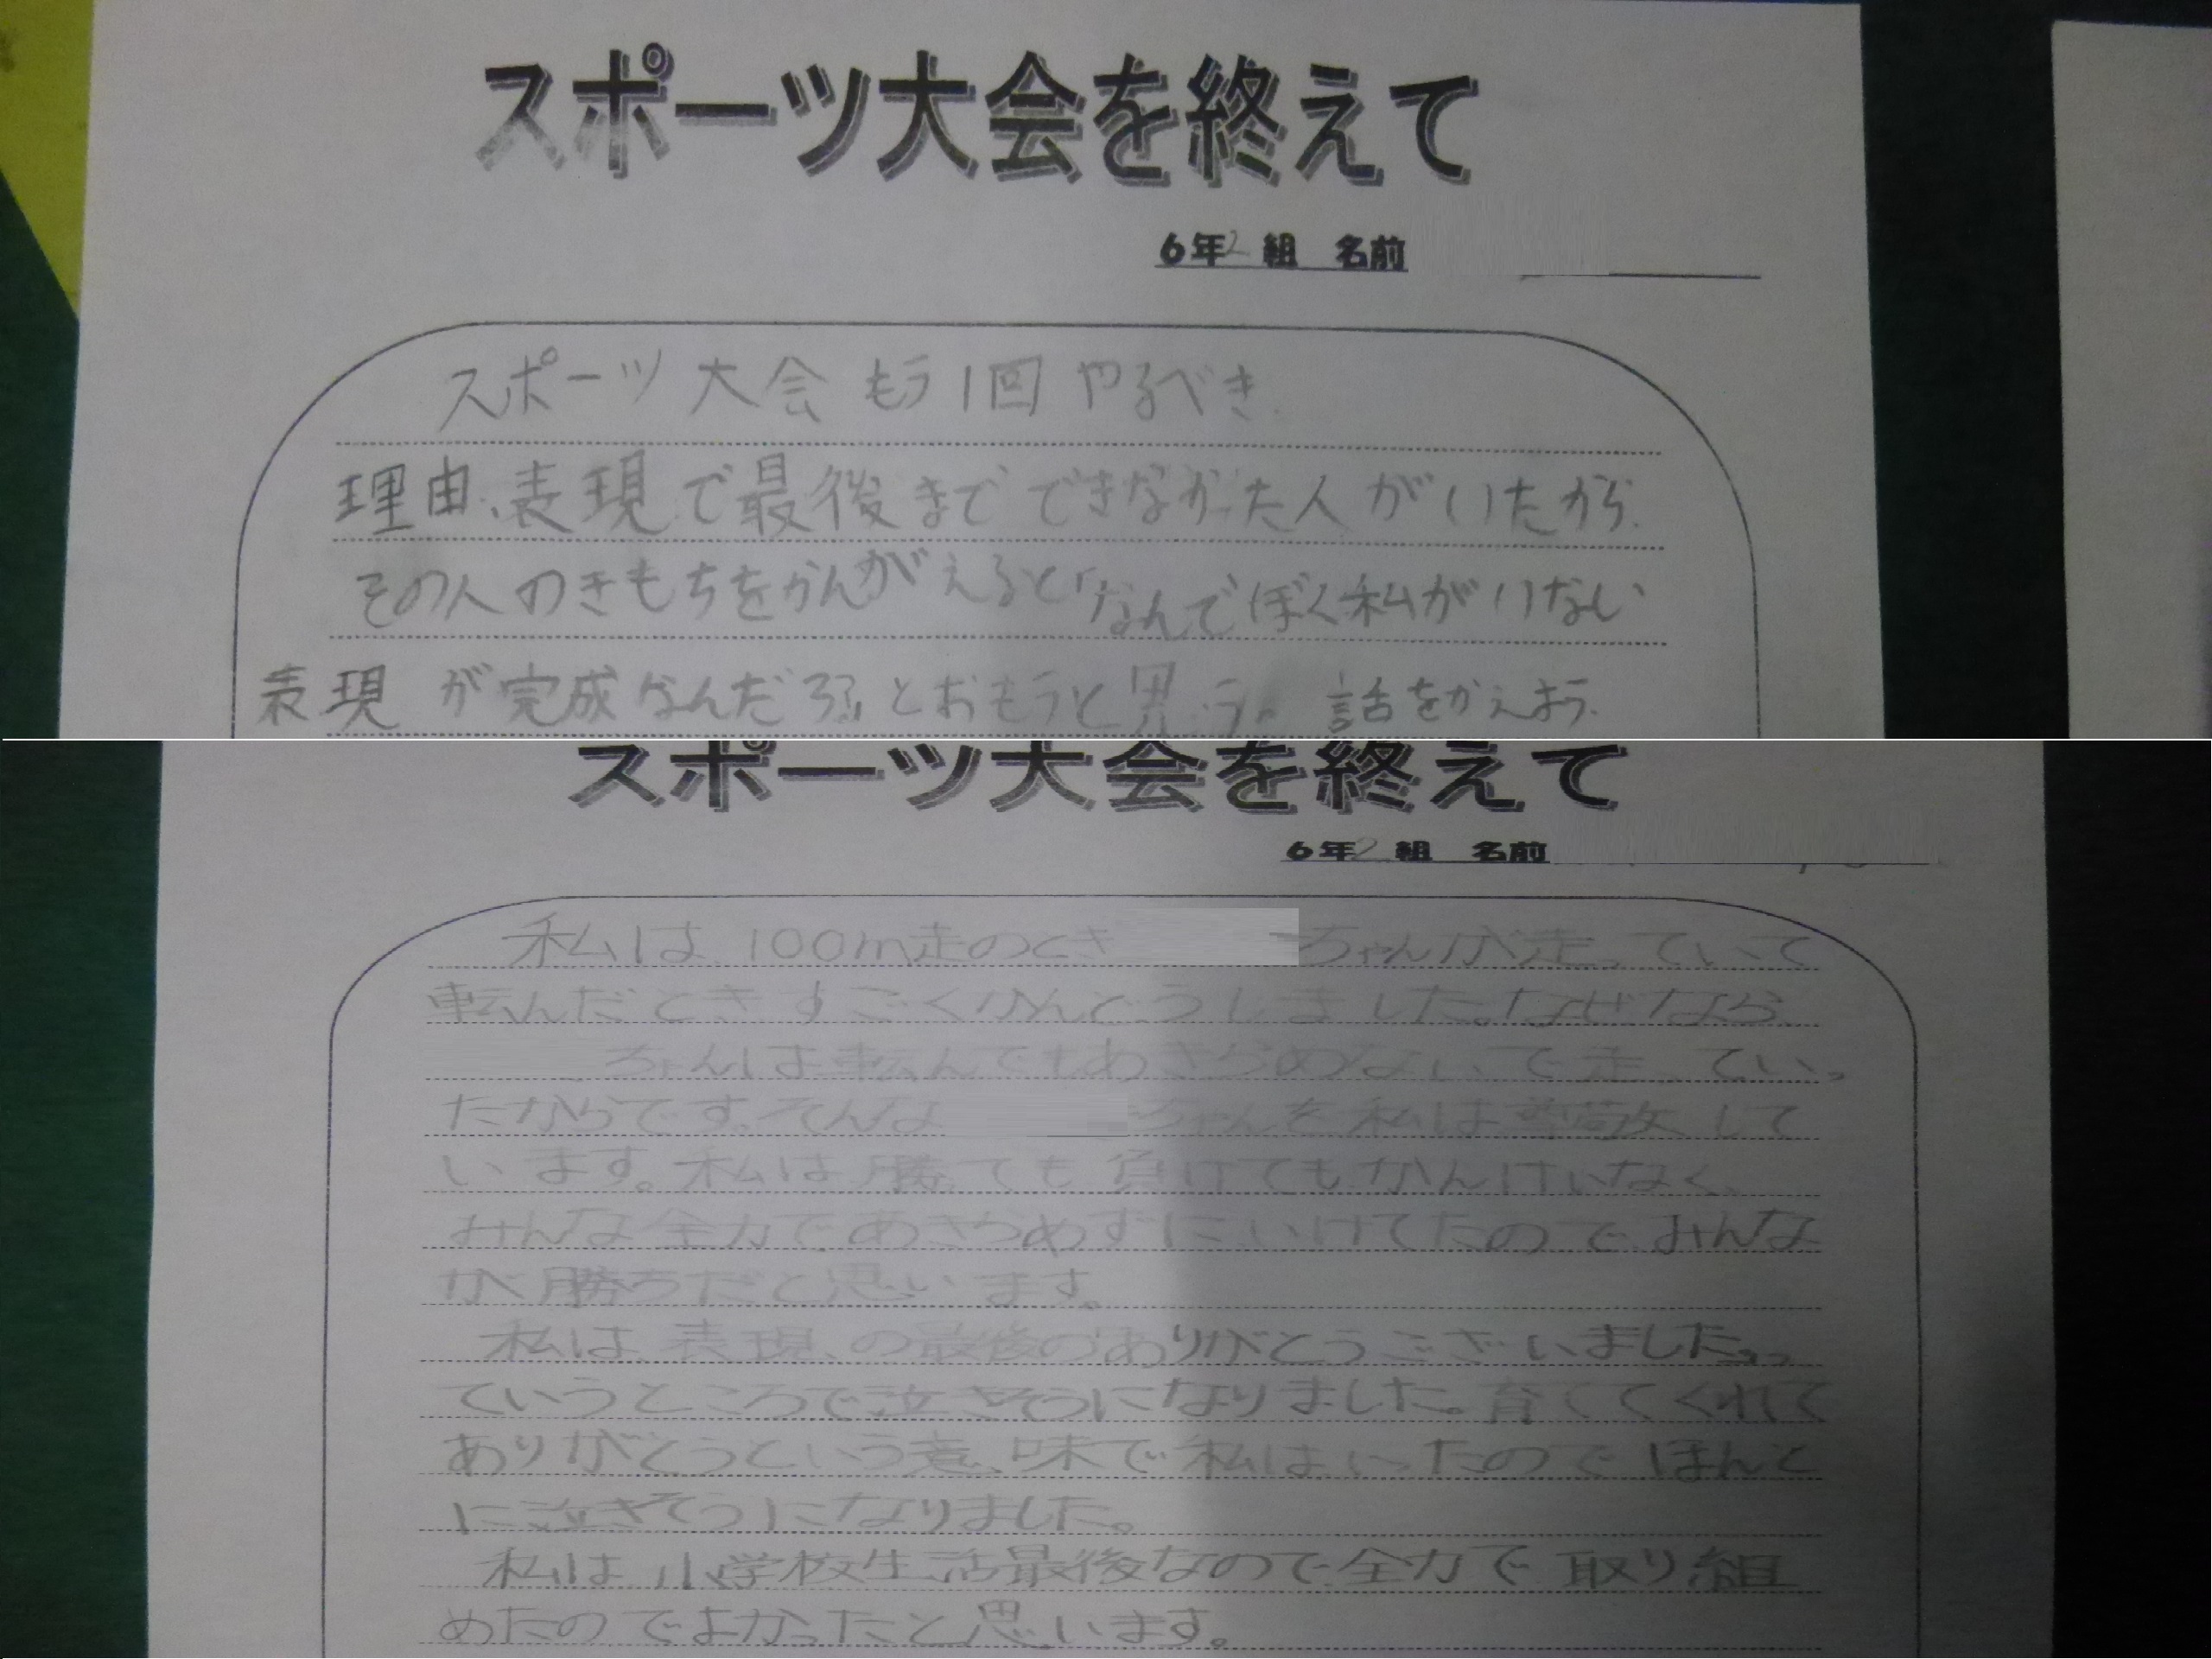 スポーツ大会を終えて
6年2組 名前
スポーツ大会もう1回やるべき.
理由、表現で最後までできなかった人がいたから.
その人のきもちをかんがえると「なんでぼく私がいない
表現が完成なんだろう」とおもうと思う。話をかえよう.
スポーツ大会を終えて
6年2組 名前
私は100m走のとき ちゃんが走っていて
転んだときすごくかんどうしました。なぜなら
ちゃんは転んでもあきらめないで走ってい。
たからです。そんな ちゃんを私は尊敬して
います。私は勝っても負けてもかんけいなく、
みんな全力であきらめずにいけてたのでみんな
が勝ちだと思います。
私は、表現、の最後のありがとうございました。っ
ていうところで泣きそうになりました。育ててくれて
ありがとうという意味で私はいったのでほんと
に泣きそうになりました。
私は小学校生活最後なので全力で取り組
めたのでよかったと思います。